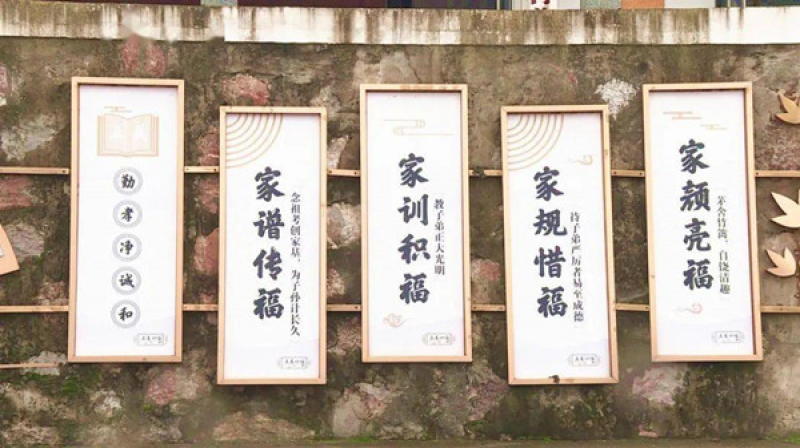 勤
孝
净
诚
和
家谱传福
念祖考创家基，为子孙计长久
家训积福
教子弟正大光明
家规惜福
待子弟严厉者易至成德
家颜亮福
茅舍竹篱，自饶清趣